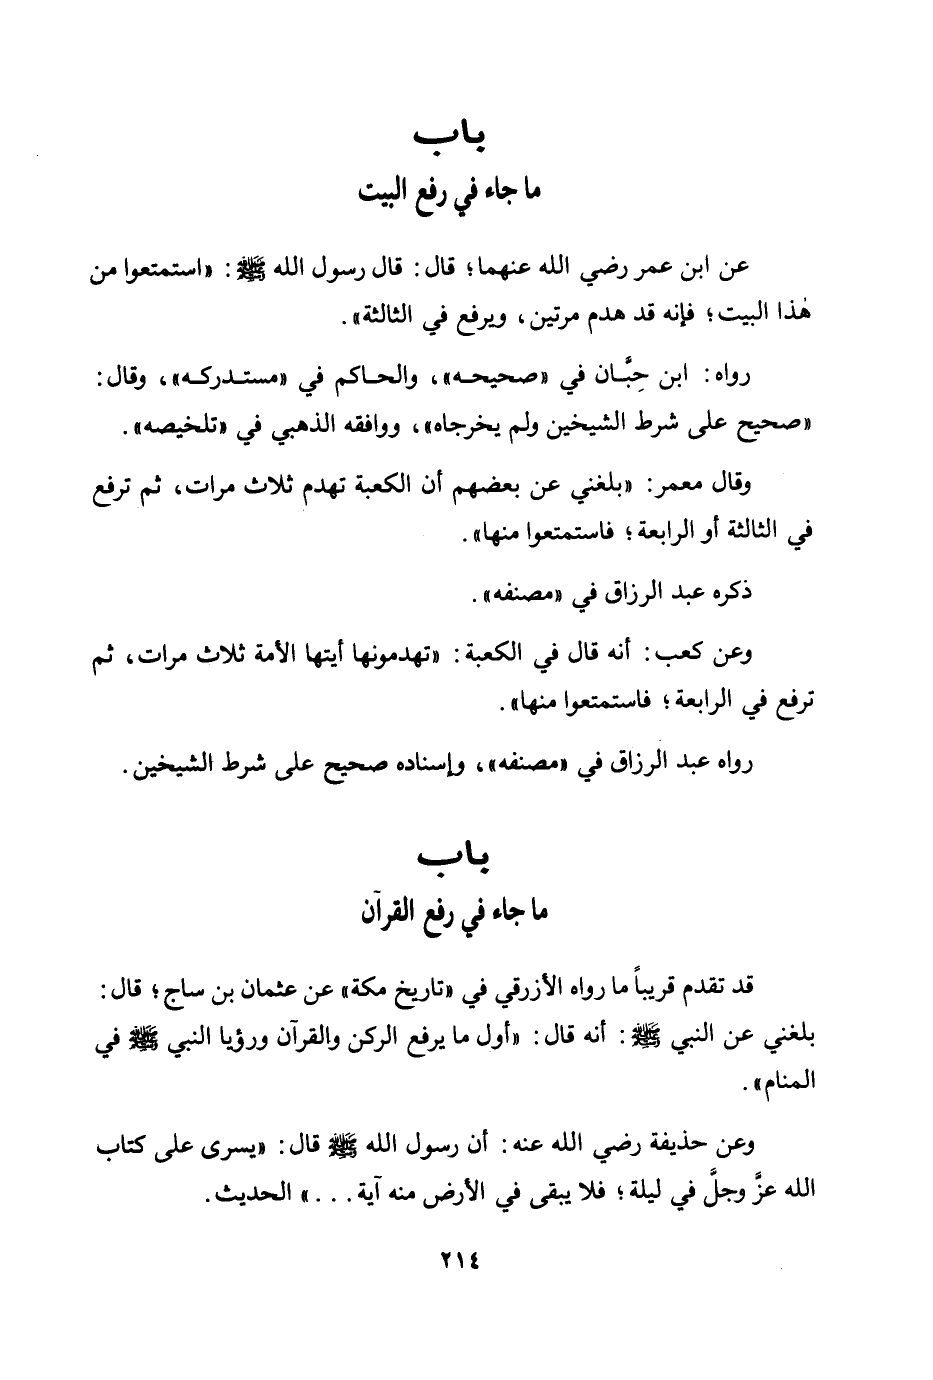 باب
ما جاء في رفع البيت
عن ابن عمر رضي الله عنهما؛ قال: قال رسول الله ﷺ: «استمتعوا من
هٰذا البيت؛ فإنه قد هدم مرتين، ويرفع في الثالثة».
رواه: ابن حِبَّـان في «صحيحـه»، والحـاكم في «مستـدركـه»، وقال:
«صحيح على شرط الشيخين ولم يخرجاه»، ووافقه الذهبي في «تلخيصه».
وقال معمر: «بلغني عن بعضهم أن الكعبة تهدم ثلاث مرات، ثم ترفع
في الثالثة أو الرابعة؛ فاستمتعوا منها».
ذكره عبد الرزاق في «مصنفه».
وعن كعب: أنه قال في الكعبة: «تهدمونها أيتها الأمة ثلاث مرات، ثم
ترفع في الرابعة؛ فاستمتعوا منها».
رواه عبد الرزاق في «مصنفه»، وإسناده صحيح على شرط الشيخين.
باب
ما جاء في رفع القرآن
قد تقدم قريباً ما رواه الأزرقي في «تاريخ مكة» عن عثمان بن ساج؛ قال:
بلغني عن النبي ﷺ: أنه قال: «أول ما يرفع الركن والقرآن ورؤيا النبي ﷺ في
المنام».
وعن حذيفة رضي الله عنه: أن رسول الله ﷺ قال: «يسرى على كتاب
الله عزَّ وجلَّ في ليلة؛ فلا يبقى في الأرض منه آية...» الحديث.
٢١٤